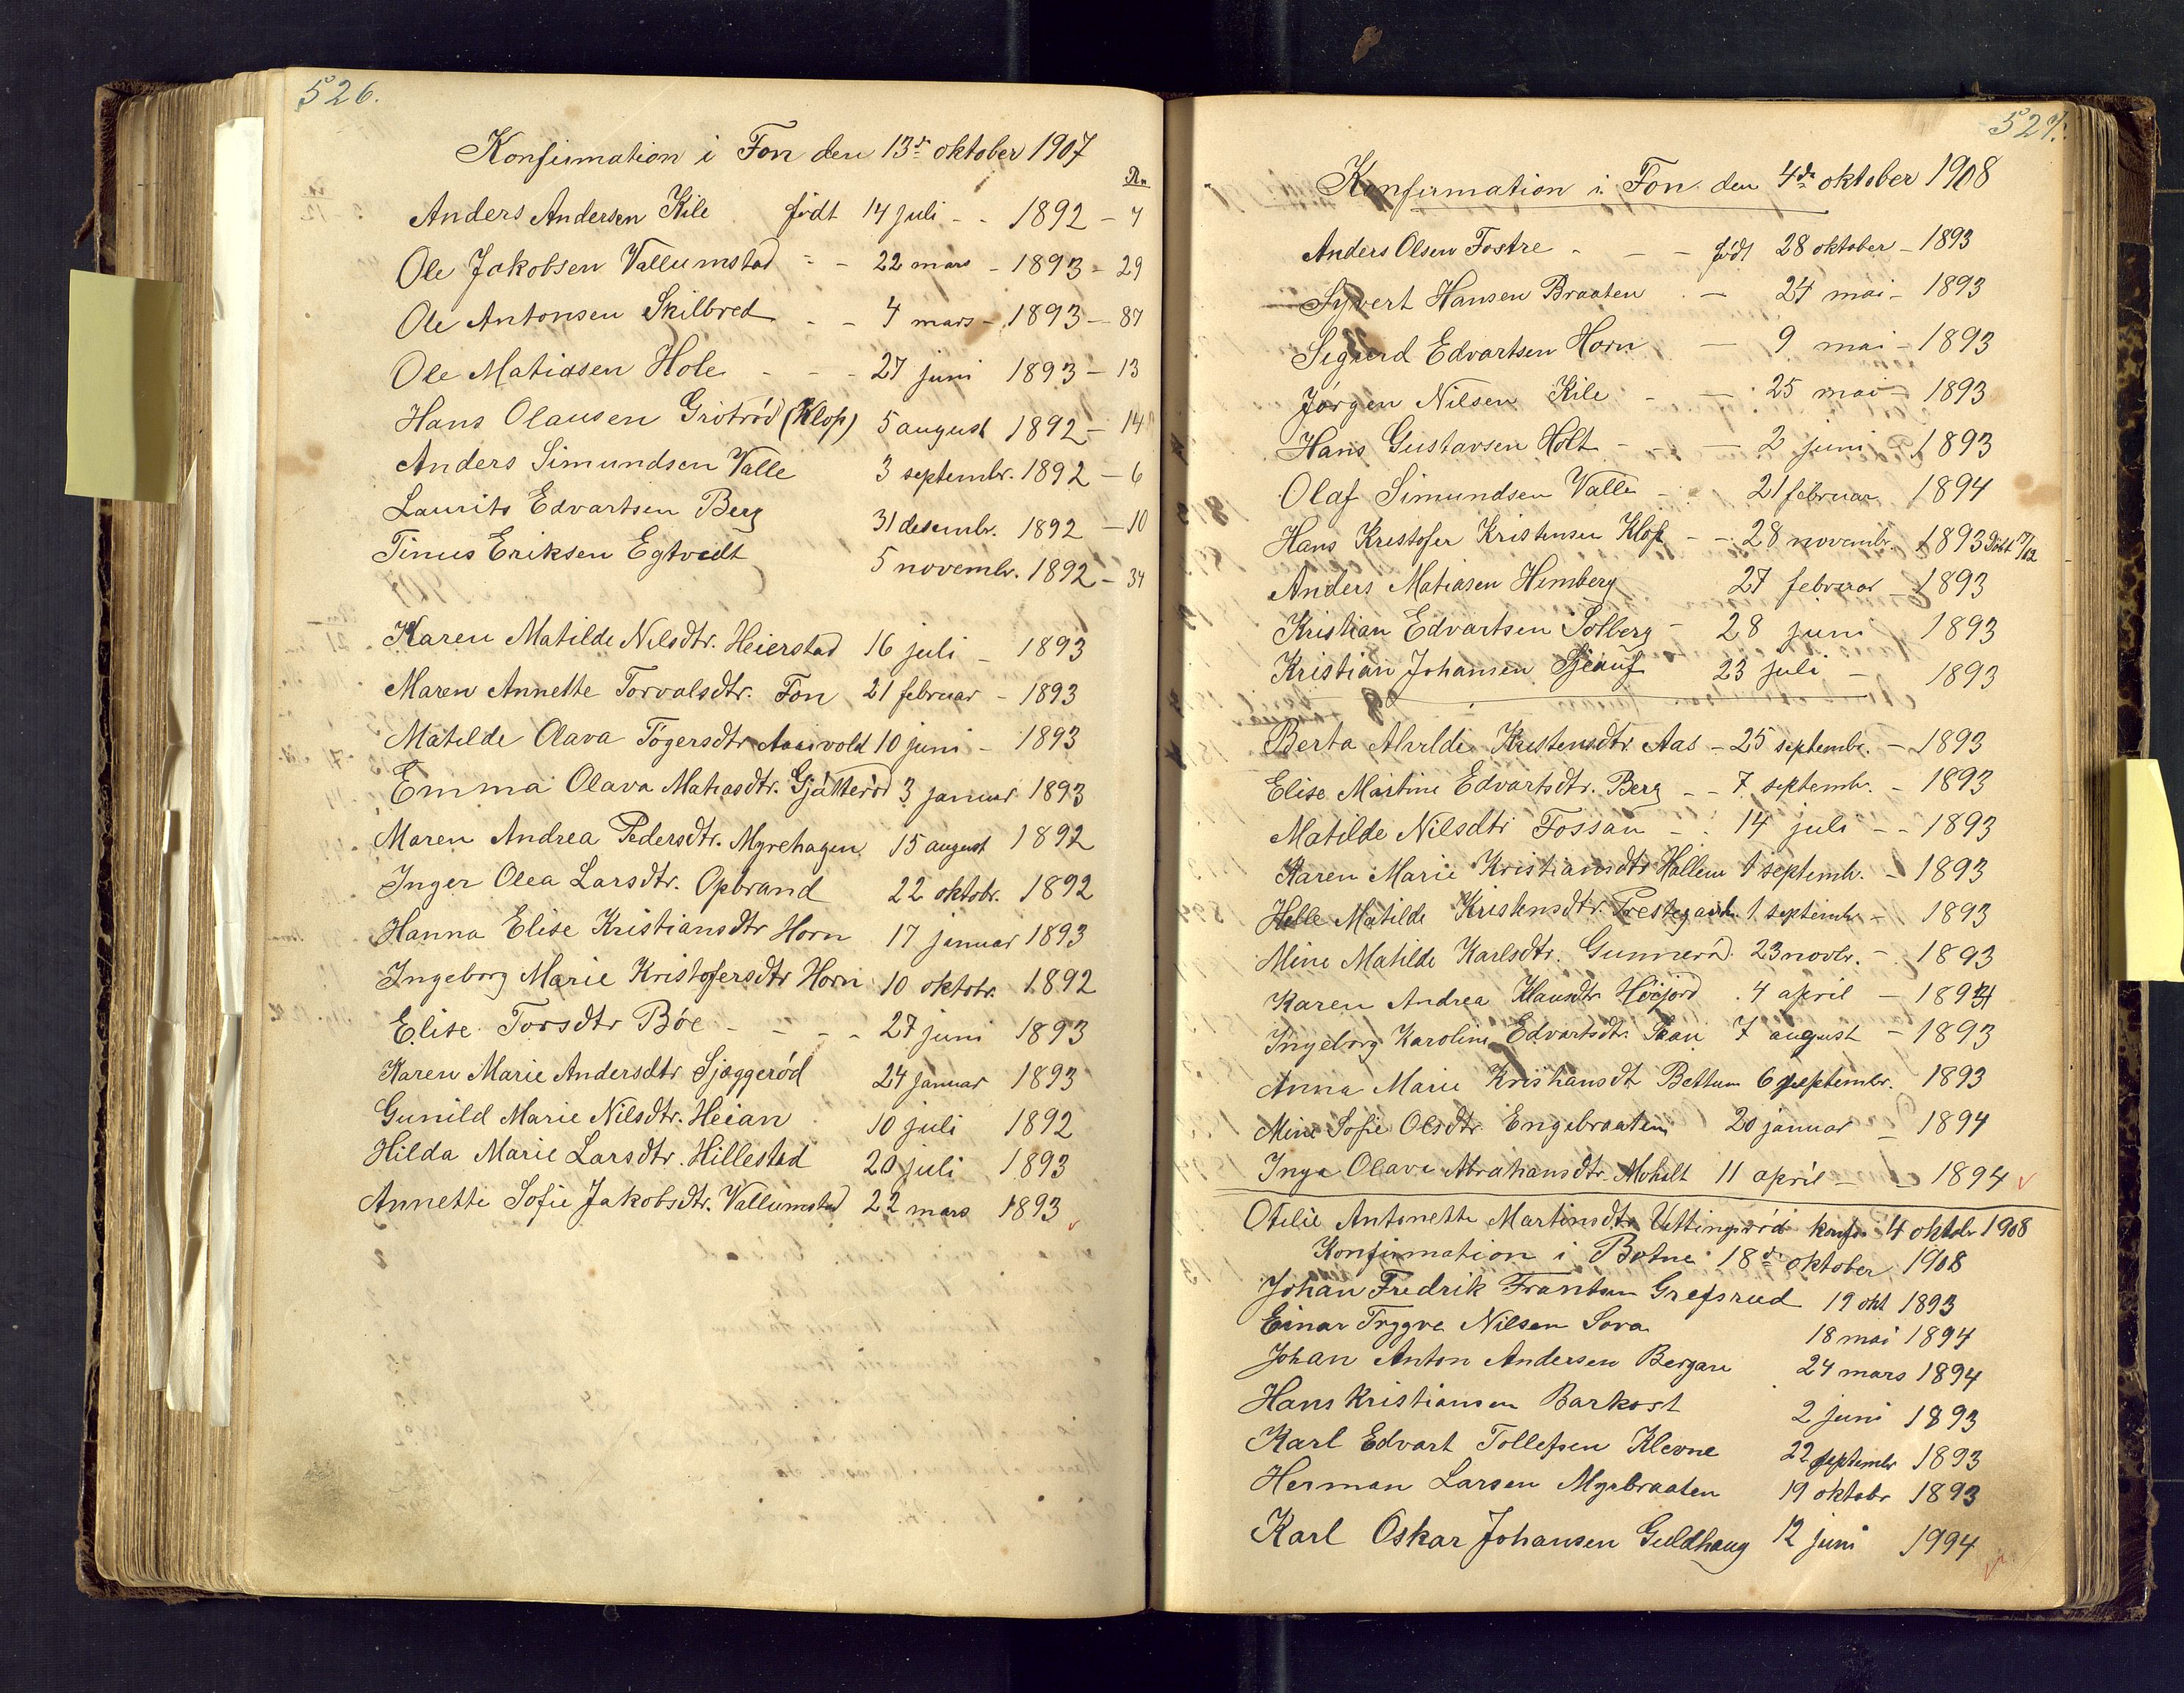 526.
Konfirmation i Fon den 13de oktober 1907
No
Anders Andersen Kile født 14 juli - - 1892 - 7
Ole Jakobsen Vallumstad - - 22 mars - 1893 - 29
Ole Antonsen Skilbred - - 4 mars - 1893 - 87
Ole Matiasen Hole - - - 27 juni 1893 - 13
Hans Olausen Grøtrød (Klop) 5 august 1892 - 14
Anders Simundsen Valle 3 septembr. 1892 - 6
Laurits Edvartsen Berg 31 desembr. 1892 - 10
Tinus Eriksen Egtvedt 5 novembr. 1892 - 34
Karen Matilde Nilsdtr. Heierstad 16 juli - 1893
Maren Annette Torvalsdtr. Fon 21 februar - 1893
Matilde Olava Tögersdtr Aasvold 10 juni - 1893
Emma Olava Matiasdtr. Gjätterød 3 januar 1893
Maren Andrea Pedersdtr. Myrehagen 15 august 1892
Inger Olea Larsdtr. Opbrand 22 oktobr. 1892
Hanna Elise Kristiansdtr Horn 17 januar 1893
Ingeborg Marie Kristofersdtr Horn 10 oktobr. 1892
Elise Torsdtr Böe - - - - 27 juni 1893
Karen Marie Andersdtr Sjæggerød 24 januar 1893
Gunild Marie Nilsdtr. Heian 10 juli 1892
Hilda Marie Larsdtr. Hillestad 20 juli 1893
Annette Sofie Jakobsdtr. Vallumstad 22 mars 1893
527.
Konfirmation i Fon den 4de oktober 1908
Anders Olsen Fostre - - - født 28 oktober - 1893
Syvert Hansen Braaten - 24 mai - 1893
Sigurd Edvartsen Horn - 9 mai - 1893
Jørgen Nilsen Kile - - 25 mai - 1893
Hans Gustavsen Holt - - - 2 juni 1893
Olaf Simundsen Valle - 21 februar 1894
Hans Kristofer Kristensen Klop - - 28 novembr. 1893 Döbt 17/12
Anders Matiasen Himberg 27 februar - 1893
Kristian Edvartsen Solberg - 28 juni 1893
Kristian Johansen 23 juli - 1893
Berta Alvilde Kristensdtr. Aas - 25 septembr. - 1893
Elise Martine Edvartsdtr. Berg - - 7 septembr. - 1893
Matilde Nilsdtr Fossan - 14 juli - - 1893
Karen Marie Kristiansdtr Hallem 1 septembr. - 1893
Helle Matilde Kristensdtr. Prestegaard. 1 septembr - 1893
Mine Matilde Karlsdtr. Gunnerød. 23 novbr. - 1893
Karen Andrea Klausdtr Høijord 4 april - 1894
Ingeborg Karoline Edvartsdtr. 7 august - 1893
Anna Marie Kristiansdt Bettum 6 septembr. 1893
Mine Sofie Olsdtr. Engebraaten 20 januar - 1894
Inga Olava Abrahamsdtr. Moholt 11 april - - 1894
Otelie Antonette Martinsdtr konf. 4 oktobr 1908
Konfirmation i Botne 18de oktober 1908
Johan Fredrik Frantsen Grefsrud 19 okt 1893
Einar Tryggve Nilsen Sora 18 mai 1894
Johan Anton Andersen Bergan 24 mars 1894
Hans Kristiansen Barkost 2 juni 1893
Karl Edvart Tollefsen Klevne 22 septembr 1893
Herman Larsen Myrbraaten 19 oktobr 1893
Karl Oskar Johansen Guldhaug 12 juni 1994